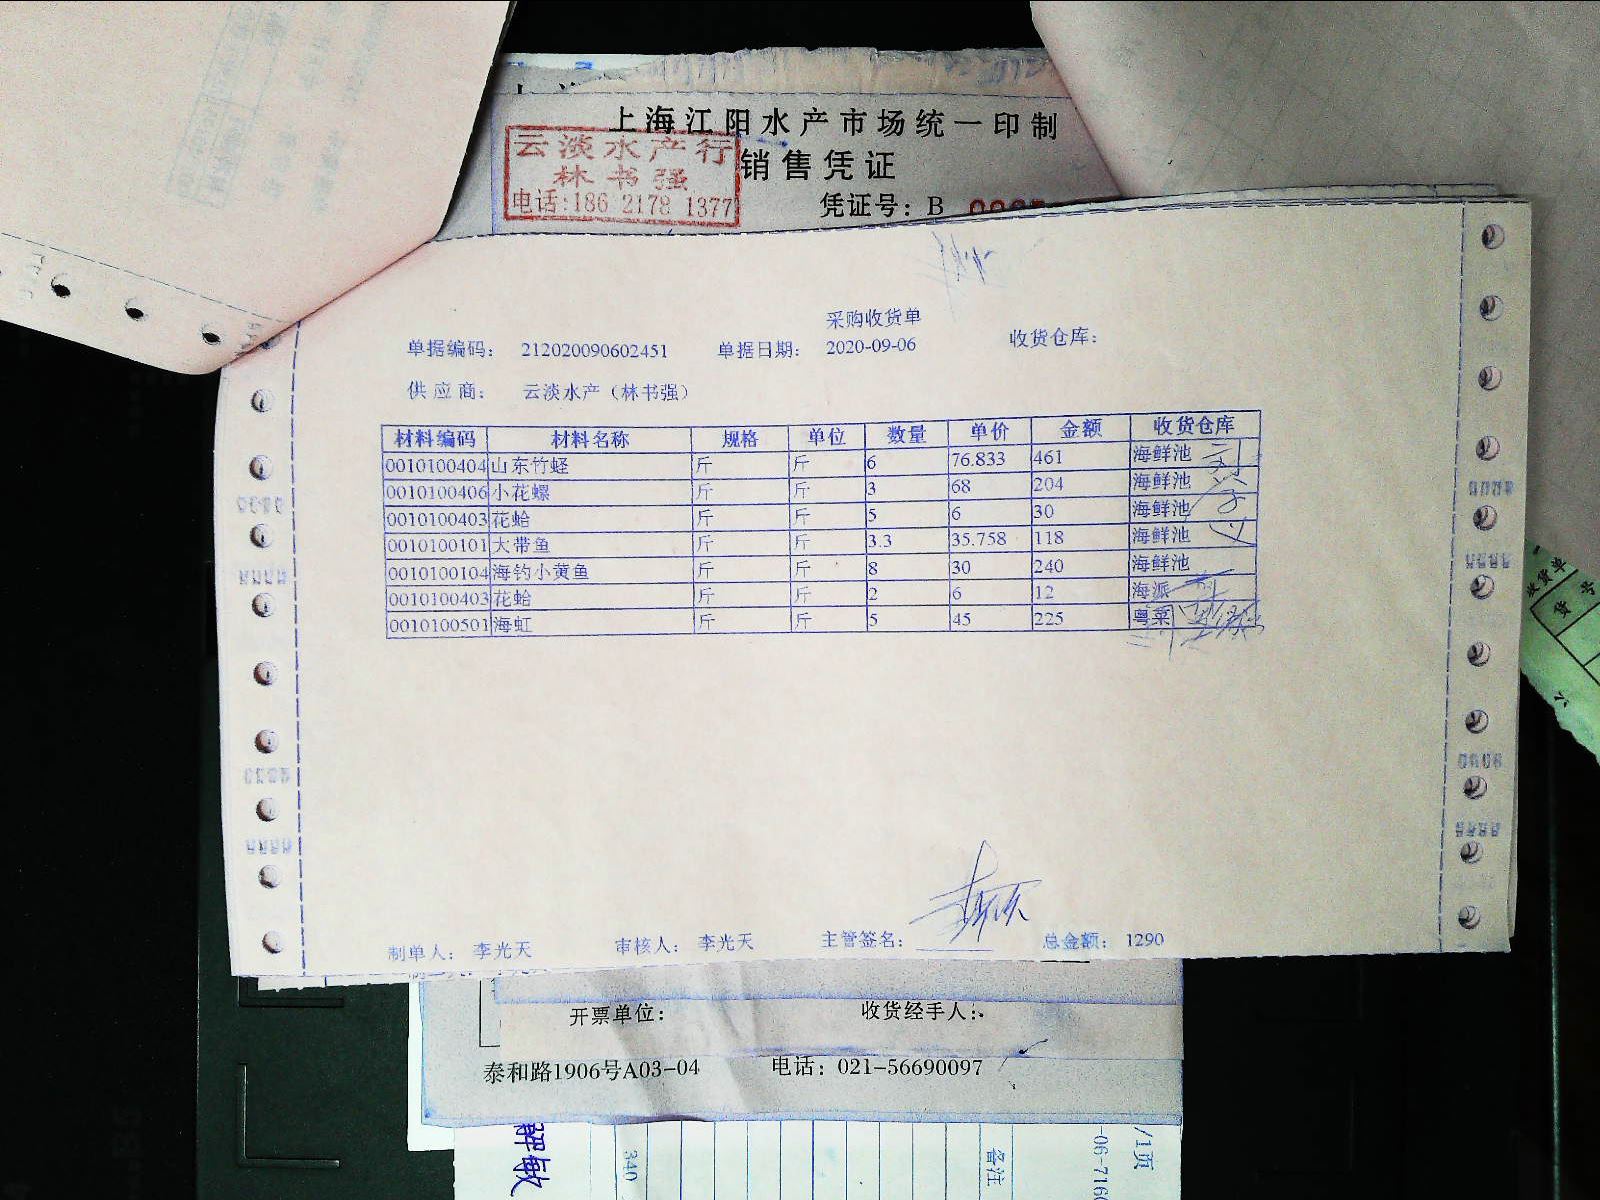 上海江阳水产市场统一印制
云淡水产行
销售凭证
林书强
电话:186 2178 1377
凭证号：B
采购收货单
单据编码： 212020090602451 单据日期： 2020-09-06 收货仓库：
供应商： 云淡水产（林书强）
材料编码 材料名称 规格 单位 数量 单价 金额 收货仓库
0010100404 山东竹蛏 斤 斤 6 76.833 461 海鲜池
0010100406 小花螺 斤 斤 3 68 204 海鲜池
0010100403 花蛤 斤 斤 5 6 30 海鲜池
0010100101 大带鱼 斤 斤 3.3 35.758 118 海鲜池
0010100104 海钓小黄鱼 斤 斤 8 30 240 海鲜池
0010100403 花蛤 斤 斤 2 6 12 海派
0010100501 海虹 斤 斤 5 45 225 粤菜
制单人： 李光天 审核人： 李光天 主管签名： 总金额： 1290
开票单位： 收货经手人：
泰和路1906号A03-04 电话：021-56690097
收货单
货号
340
备注
/1页